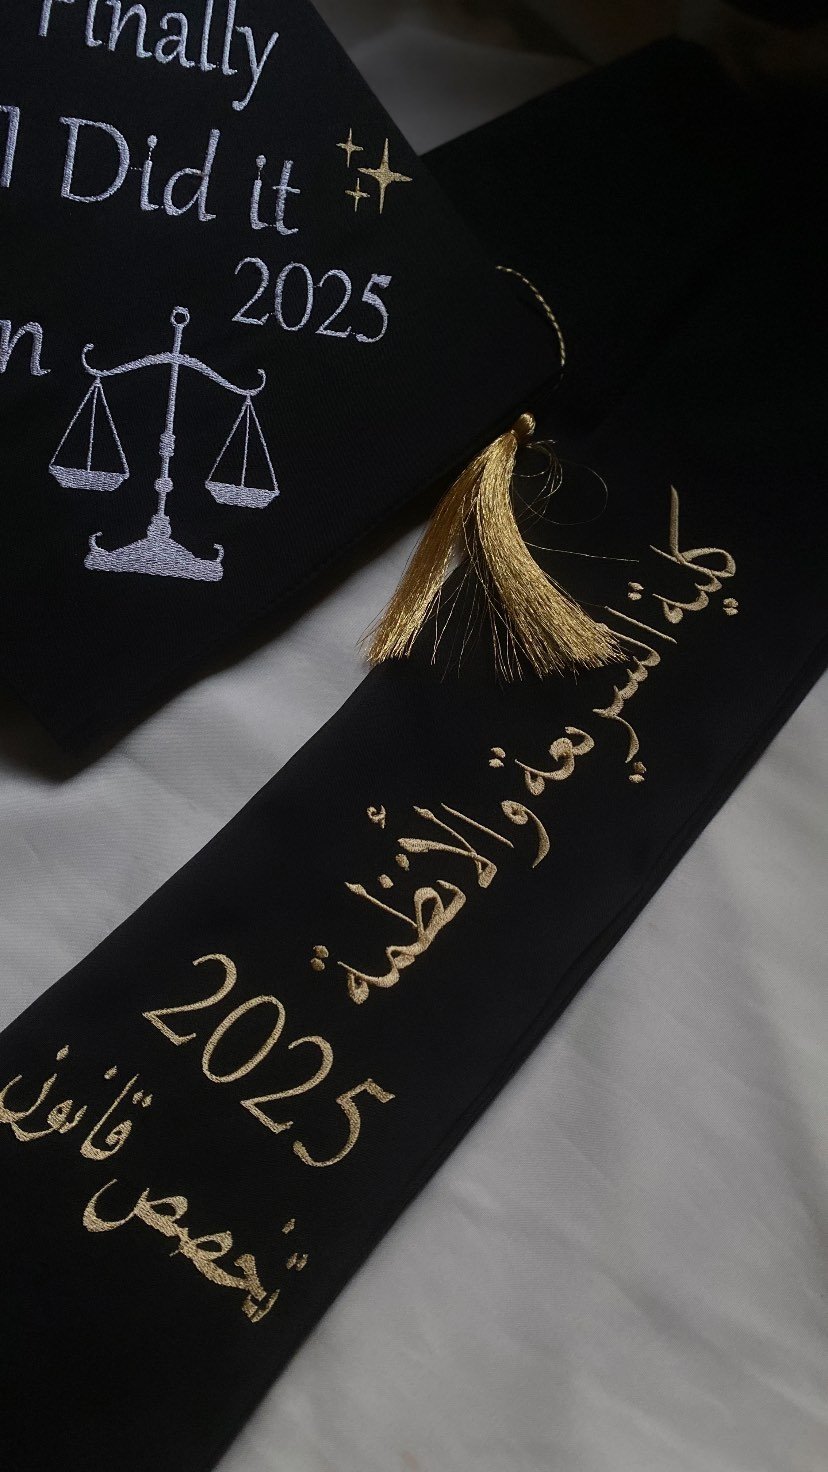 Finally
I Did it
2025
كلية الشريعة والأنظمة
2025
تخصص قانون